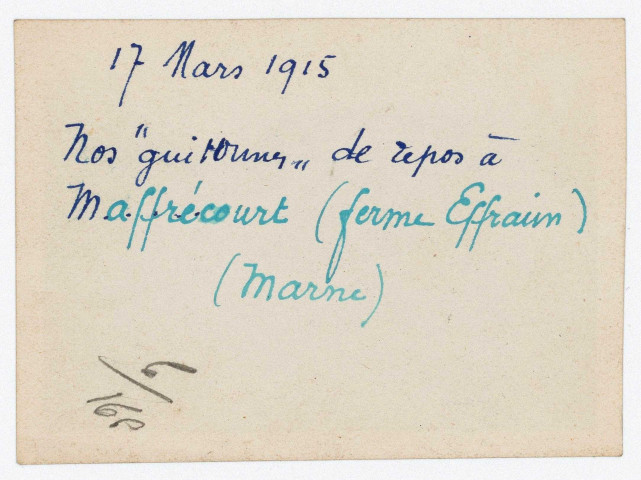 17 Mars 1915
Nos "guitounes" de repos à
Maffrécourt (ferme Effraim)
(Marne)
6/
168